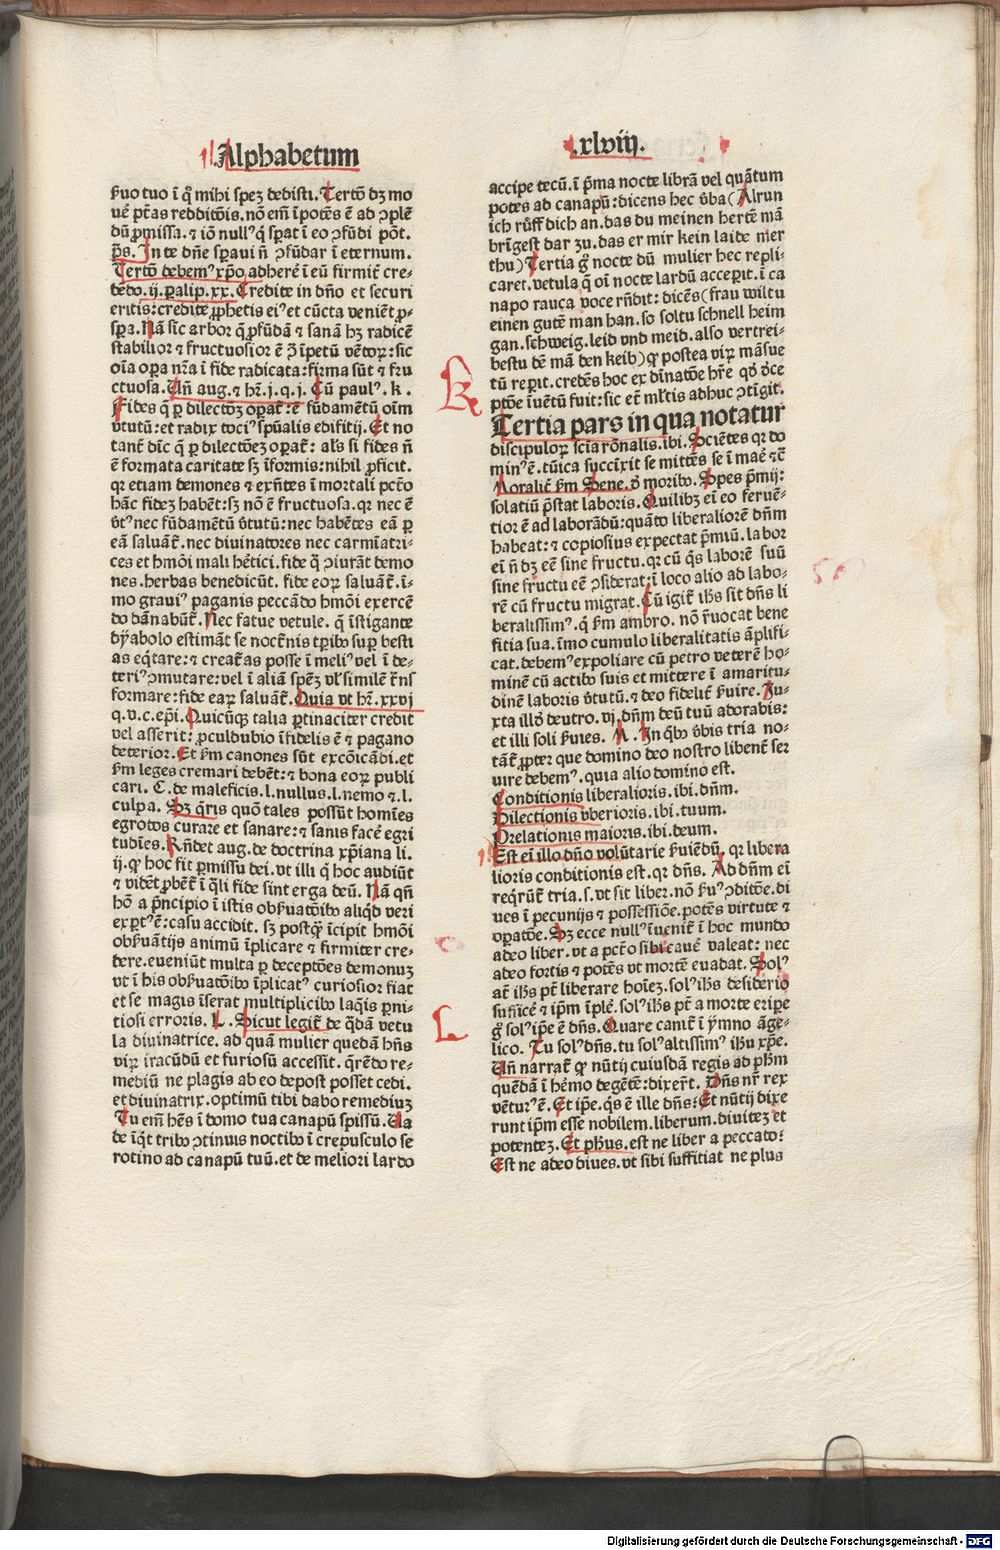 Alphabetum
.xlviij.
ẜuo tuo ī q̊ mihi speꝫ dedisti. Tertō dꝫ mo
uē p̄tās redditōis. nō em̄ īpotēs ē ad ɔplē
dū ꝓmissa. ⁊ iō nullꝰ q̄ sꝑat ī eo ɔfūdi pōt.
p̄s. In te dn̄e sꝑaui n̄ ɔfūdar ī eternum.
Tertō debemꝰ xp̄o adherē ī eū firmit̄ cre-
dēdo. ij. ꝑalip. xx. Credite in dn̄o et securi
eritis: credite ꝓphetis eiꝰ et cūcta veniēt ꝓ-
sꝑa. Nā sic arbor q̄ ꝓfūdā ⁊ sanā hꝫ radicē
stabilior ⁊ fructuosior ē ꝯ̄ īpetū vētoꝝ: sic
oīa oꝑa nr̄a ī fide radicata: firma sūt ⁊ fru
ctuosa. Un̄ aug. ⁊ hr̄. j. q. j. Cū paulꝰ. k.
Fides q̄ ꝑ dilectōꝫ oꝑat̄: ē fūdamētū oīm
v̓tutū: et radix tociꝰ sp̄ualis edificij. Et no
tant̄ dīc q̄ ꝑ dilectōeꝫ oꝑat̄: al̓s si fides n̄
ē formata caritate sꝫ īformis: nihil ꝓficit.
qꝛ etiam demones ⁊ exn̄tes ī mortali pctō
hāc fideꝫ habēt: sꝫ nō ē fructuosa. qꝛ nec ē
v̓tꝰ nec fūdamētū v̓tutū: nec habētes eā ꝑ
eā saluāt̄. nec diuinatores nec carmīatri-
ces et hmōi mali hētici. fide q̄ ɔiurāt demo
nes. herbas benedicūt. fide eoꝝ saluāt̄. ī-
mo grauiꝰ paganis peccādo hmōi exercē
do dānabūt̄. Nec fatue vetule. q̄ īstigante
dyabolo estimāt se noctn̄is tꝑibꝰ suꝑ besti
as eq̄tare: ⁊ creat̄as posse ī meliꝰ vel ī de-
teriꝰ ɔmutare: vel ī aliā sp̄eꝫ vl̓ simile t̄ns
formare: fide eaꝝ saluāt̄. Quia vt hr̄. xxvj
q. v. c. ep̄i. Quicūqꝫ talia ꝑtinaciter credit
vel asserit: ꝓculdubio īfidelis ē ⁊ pagano
deterior. Et ẜm canones sūt excōicādi. et
ẜm leges cremari debēt: ⁊ bona eoꝝ publi
cari. C. de maleficis. l. nullus. l. nemo ⁊ l.
culpa. Sꝫ q̄ris quō tales possūt homīes
egrotos curare et sanare: ⁊ sanis facē egri
tudīes. Rn̄det aug. de doctrina xp̄iana li.
ij. qꝙ hoc fit ꝑmissu dei. vt illi q̄ hoc audiūt
⁊ vidēt ꝓbēt̄ ī q̄li fide sint erga deū. Nā qn̄
hō a pn̄cipio ī istis obẜuatōibꝰ aliqd̓ veri
exꝑtꝰ ē: casu accidit. sꝫ postqꝙ īcipit hmōi
obẜuātijs animū īplicare ⁊ firmiter cre-
dere. eueniūt multa ꝑ deceptōes demonuꝫ
vt ī his obẜuatōibꝰ īplicatꝰ curiosior fiat
et se magis īserat multiplicibꝰ laq̄is ꝑni-
tiosi erroris. K. Sicut legit̄ de q̄dā vetu
la diuinatrice. ad quā mulier quedā hn̄s
viꝝ iracūdū et furiosū accessit. q̄rēdo re-
mediū ne plagis ab eo depost posset cedi.
et diuinatrix. optimū tibi dabo remediuꝫ
Tu em̄ hēs ī domo tua canapū spissū. Ua
de īq̄t tribꝰ ɔtinuis noctibꝰ ī crepusculo se
rotino ad canapū tuū. et de meliori lardo
accipe tecū. ī p̄ma nocte librā vel quātum
potes ad canapū: dicens hec v̓ba (Alrun
ich rūff dich an. das du meinen hertē mā
brīgest dar zu. das er mir kein laide mer
thu) Tertia g̊ nocte dū mulier hec repli-
caret. vetula q̄ oī nocte lardū acceꝑit. ī ca
napo rauca voce rn̄dit: dicēs (frau wiltu
einen gutē man han. so soltu schnell heim
gan. schweig. leid vnd meid. also vertrei-
bestu dē mā den keib) qꝙ postea viꝝ māsue
tū reꝑit. credēs hoc ex dīnatōe hr̄e qd̓ ꝯce
ptōe īuētū fuit: sic et ml̓tis adhuc ɔtīgit.
Tertia pars in qua notatur
discipuloꝝ scīa rōnalis. ibi. Sciētes qꝛ do
minꝰ ē. tūica succīxit se mittēs se ī mare ⁊c̄
Moralit̄ ẜm Sene. d̓ moribꝰ. Spes p̄mij:
solatiū p̄stat laboris. Quilibꝫ ei eo feruē-
tior ē ad laborādū: quāto liberaliorē dn̄m
habeat: ⁊ copiosius expectat p̄miū. labor
ei n̄ dꝫ eē sine fructu. qꝛ cū q̄s laborē suū
sine fructu eē ɔsiderat: ī loco alio ad labo-
rē cū fructu migrat. Cū igit̄ ihs̄ sit dn̄s li
beralissimꝰ. q̄ ẜm ambro. nō r̓uocat bene
fitia sua. īmo cumulo liberalitatis āplifi-
cat. debemꝰ expoliare cū petro veterē ho-
minē cū actibꝰ suis et mittere ī amaritu-
dinē laboris v̓tutū. ⁊ deo fidelit̄ ẜuire. Ju-
xta illd̓ deutro. vj. dn̄m deū tuū adorabis:
et illi soli ẜuies. M. In q̄bꝰ v̓bis tria no-
tāt̄ ꝓpter que domino deo nostro libent̄ ser
uire debemꝰ. quia alio domino est.
Conditionis liberalioris. ibi. dn̄m.
Dilectionis vberioris. ibi. tuum.
Prelationis maioris. ibi. deum.
Est ei illo dn̄o volūtarie ẜuiēdū. qꝛ libera
lioris conditionis est. qꝛ dn̄s. Ad dn̄m ei
reqr̄ūt̄ tria. s. vt sit liber. nō ẜuꝰ ɔditōe. di
ues ī pecunijs ⁊ possessiōe. potēs virtute ⁊
oꝑatōe. Sꝫ ecce nullꝰ īuenit̄ ī hoc mundo
adeo liber. vt a pctō sibi cauē valeat: nec
adeo fortis ⁊ potēs vt mortē euadat. Solꝰ
at̄ ihs̄ pt̄ liberare hoīeꝫ. solꝰ ihs̄ desiderio
sufficē ⁊ ip̄m īplē. solꝰ ihs̄ pt̄ a morte eriꝑe
g̊ solꝰ ip̄e ē dn̄s. Quare canit̄ ī ymno āge-
lico. Tu solꝰ dn̄s. tu solꝰ altissimꝰ ihu xp̄e.
Un̄ narrat̄ qꝙ nūtij cuiusdā regis ad pħm
quēdā ī hēmo degētē: dixer̄t. Dn̄s nr̄ rex
vēturꝰ ē. Et ip̄e. q̄s ē ille dn̄s: Et nūtij dixe
runt ip̄m esse nobilem. liberum. diuiteꝫ et
potenteꝫ. Et pħus. est ne liber a peccato:
Est ne adeo diues. vt sibi suffitiat ne plus
K
L
Digitalisierung gefördert durch die Deutsche Forschungsgemeinschaft - DFG